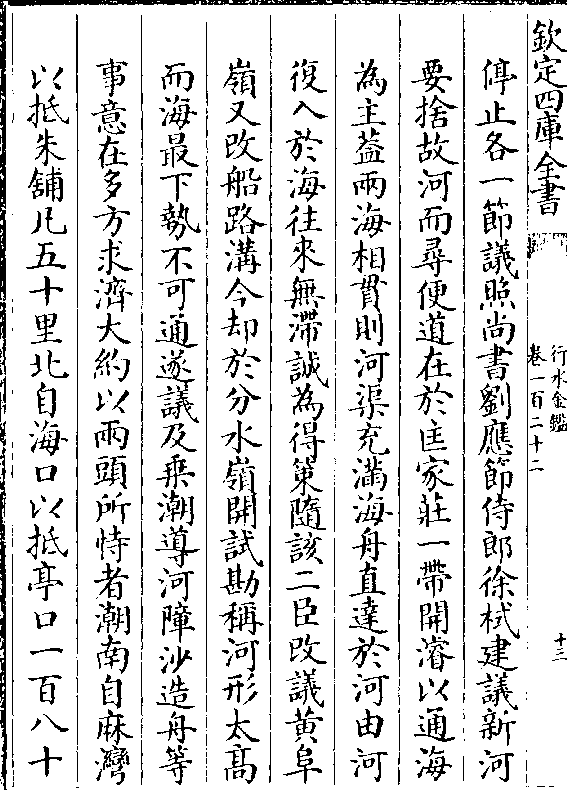 欽定四庫全書
行水金鑑
卷一百二十二
十三
停止各一節議照尚書劉應節侍郎徐栻建議新河
要捨故河而尋便道在於匡家莊一帶開濬以通海
為主葢兩海相貫則河渠充滿海舟直達於河由河
復入於海往來無滯誠為得策隨該二臣改議黃阜
嶺又改船路溝今却於分水嶺開試勘稱河形太髙
而海最下勢不可通遂議及乗潮導河障沙造舟等
事意在多方求濟大約以兩頭所恃者潮南自麻灣
以抵朱舖凡五十里北自海口以抵亭口一百八十